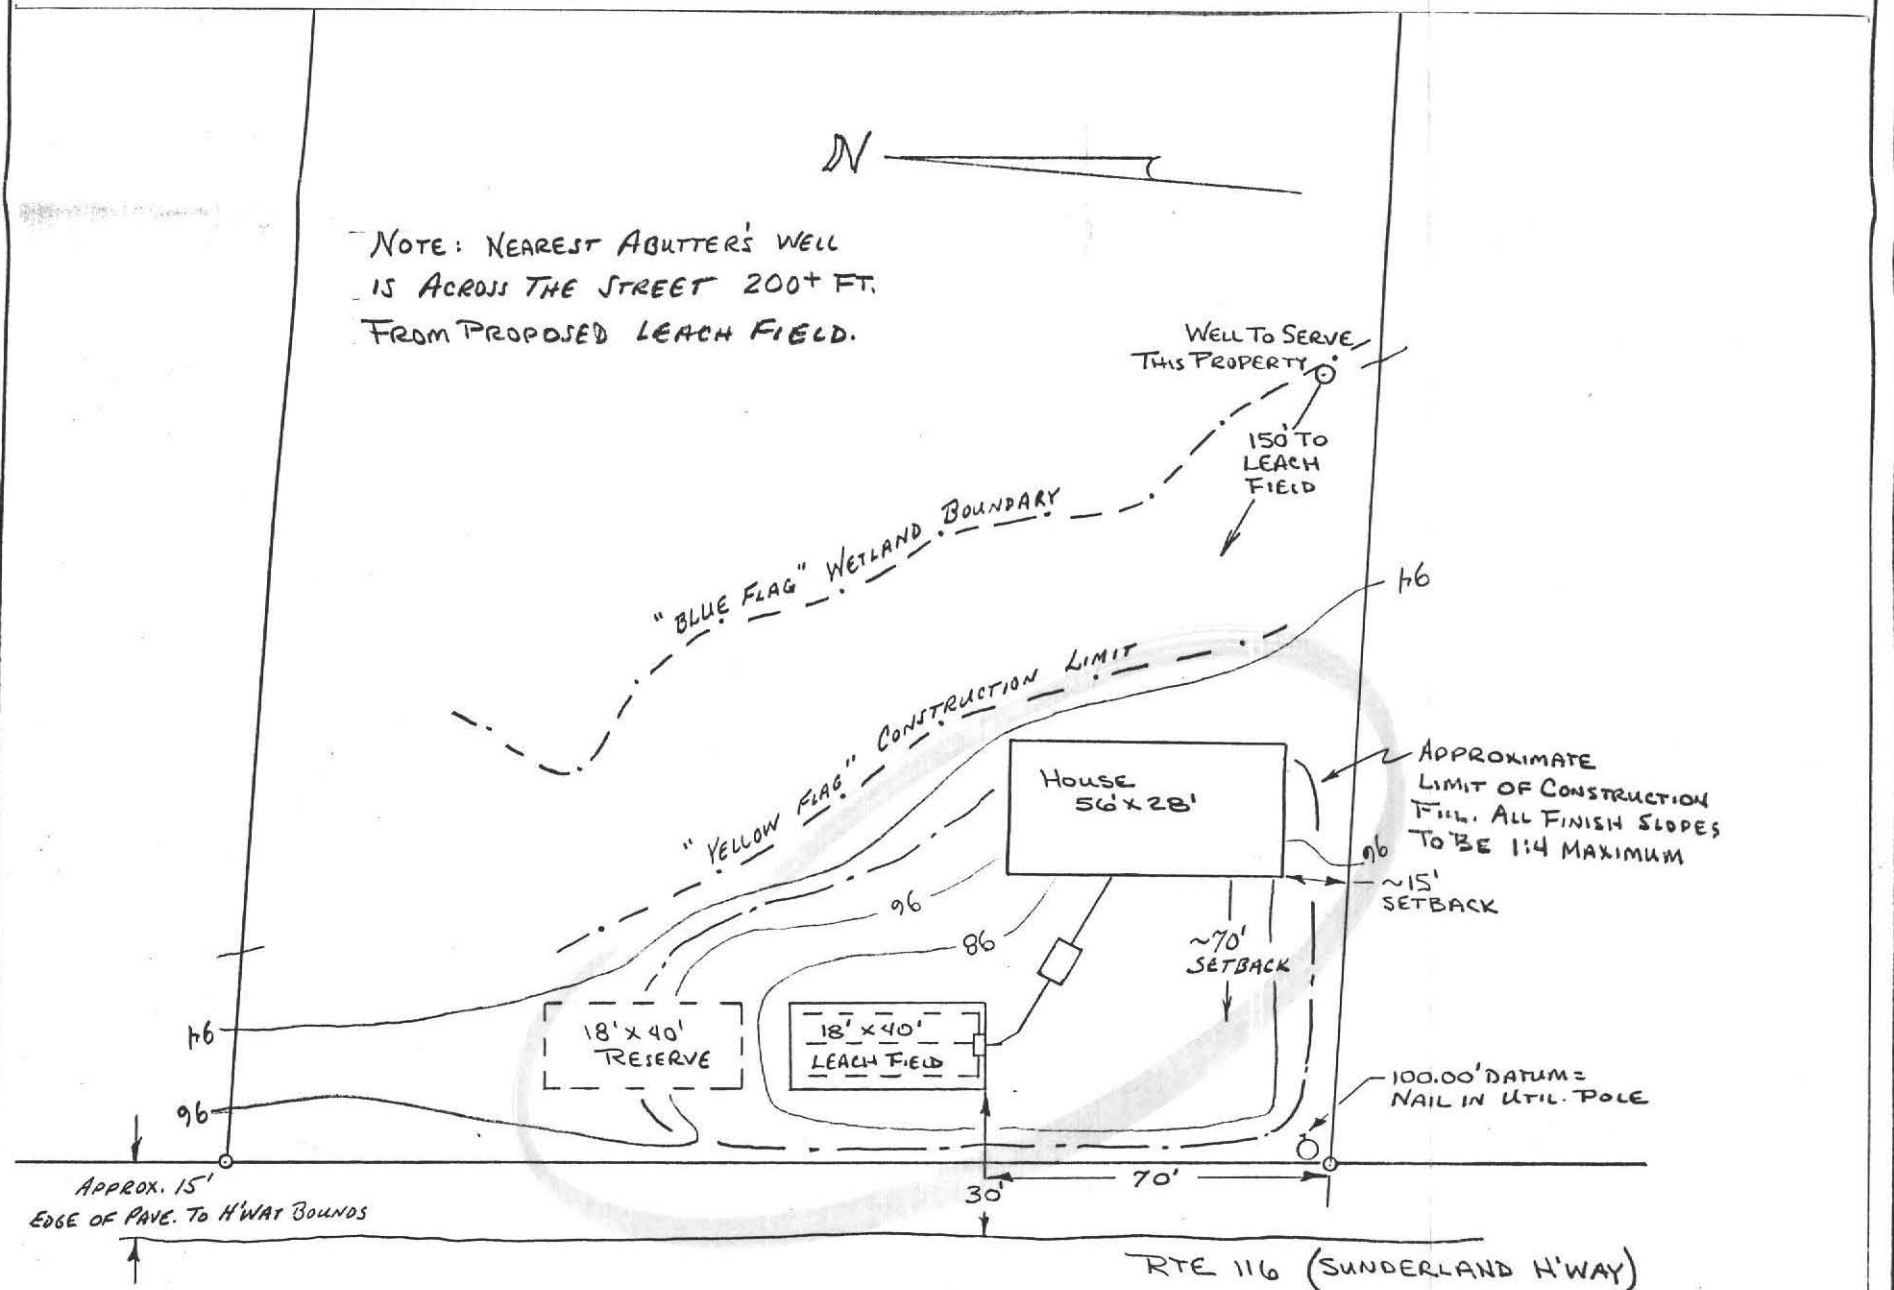 N
NOTE: NEAREST ABUTTER'S WELL
IS ACROSS THE STREET 200+ FT.
FROM PROPOSED LEACH FIELD.
WELL TO SERVE
THIS PROPERTY
150' TO
LEACH
FIELD
"BLUE FLAG" WETLAND BOUNDARY
94
"YELLOW FLAG" CONSTRUCTION LIMIT
HOUSE
56' X 28'
APPROXIMATE
LIMIT OF CONSTRUCTION
FILL. ALL FINISH SLOPES
TO BE 1:4 MAXIMUM
96
~15'
SETBACK
96
98
~70'
SETBACK
94
18' X 40'
RESERVE
18' X 40'
LEACH FIELD
96
100.00' DATUM =
NAIL IN UTIL. POLE
APPROX. 15'
EDGE OF PAVE. TO H'WAY BOUNDS
30'
70'
RTE 116 (SUNDERLAND H'WAY)